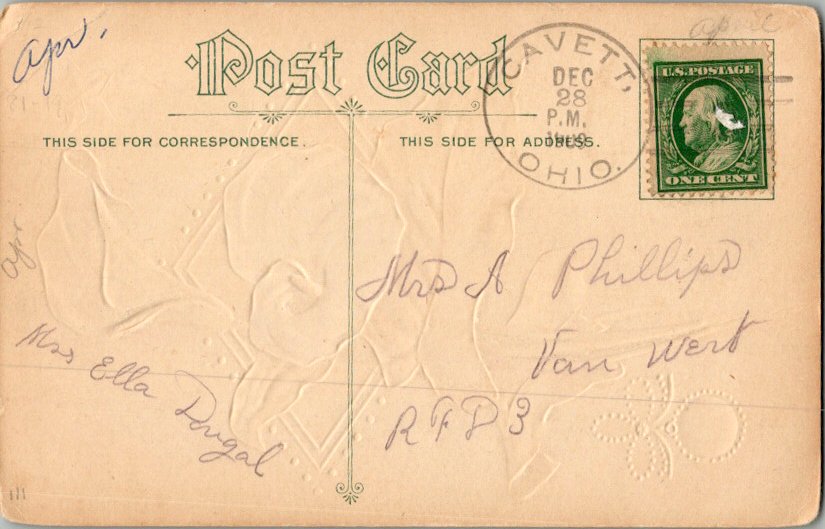 Apr.
Post Card
THIS SIDE FOR CORRESPONDENCE.
THIS SIDE FOR ADDRESS.
CAVETT,
DEC
28
P.M.
1909
OHIO.
April
U.S. POSTAGE
ONE CENT
Apr
Mrs A Phillips
Van Wert
RFD 3
Miss Ella Dougal
111